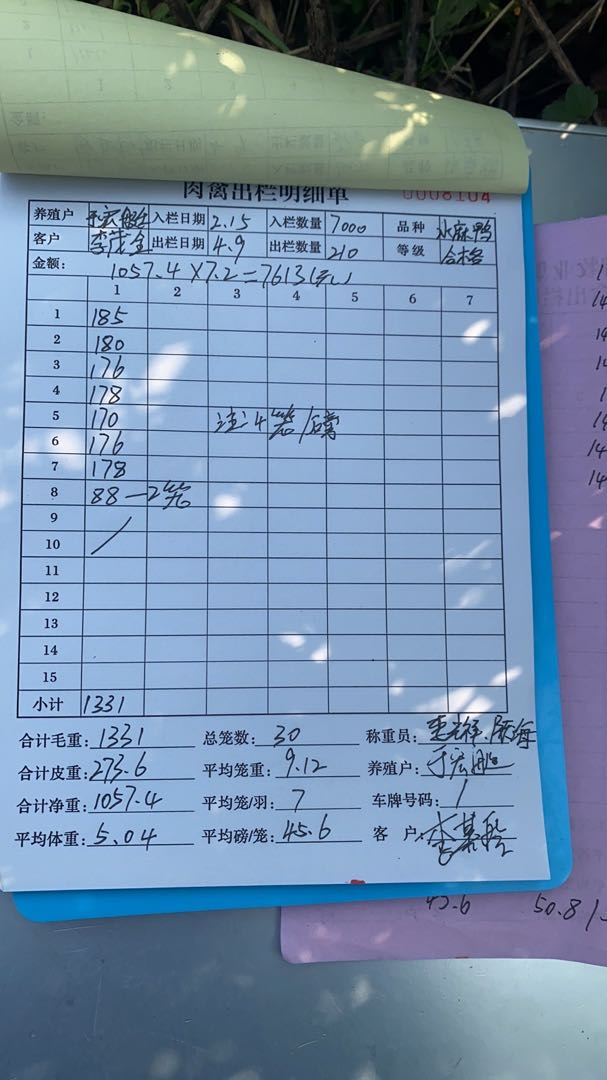 肉禽出栏明细单 0008104
养殖户 于宏艇 入栏日期 2.15 入栏数量 7000 品种 水麻鸭
客户 李茂全 出栏日期 4.9 出栏数量 210 等级 合格
金额: 1057.4×7.2=7613(元)
1 2 3 4 5 6 7
1 185
2 180
3 176
4 178
5 170 注:4笼/磅
6 176
7 178
8 88—2笼
9
10 /
11
12
13
14
15
小计 1331
合计毛重: 1331 总笼数: 30 称重员:
合计皮重: 273.6 平均笼重: 9.12 养殖户: 于宏艇
合计净重: 1057.4 平均笼/羽: 7 车牌号码: /
平均体重: 5.04 平均磅/笼: 45.6 客 户:
42.6 50.8